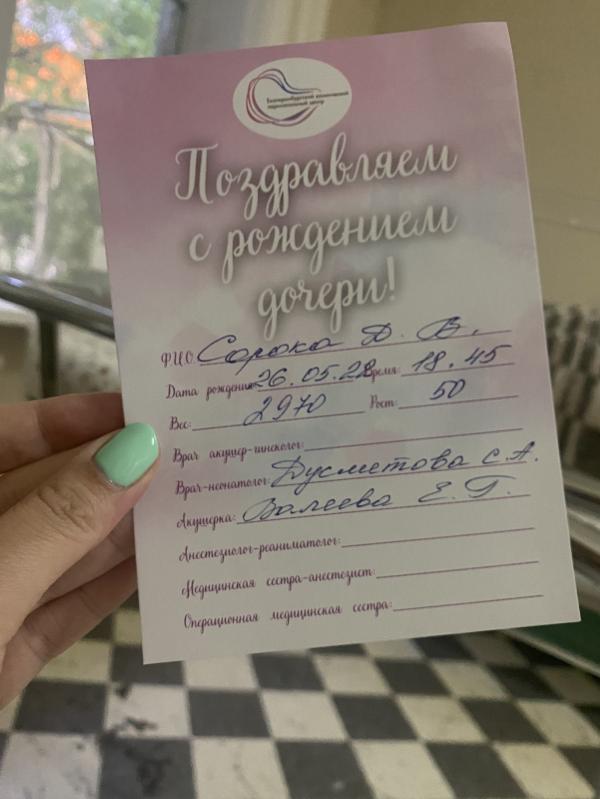 Екатеринбургский клинический
перинатальный центр
Поздравляем
с рождением
дочери!
Ф.И.О. Сорока Д. В.
Дата рождения 26.05.22 Время: 18.45
Вес: 2970 Рост: 50
Врач акушер-гинеколог:
Врач-неонатолог: Дусметова С.А.
Акушерка: Валеева Е.Г.
Анестезиолог-реаниматолог:
Медицинская сестра-анестезист:
Операционная медицинская сестра: